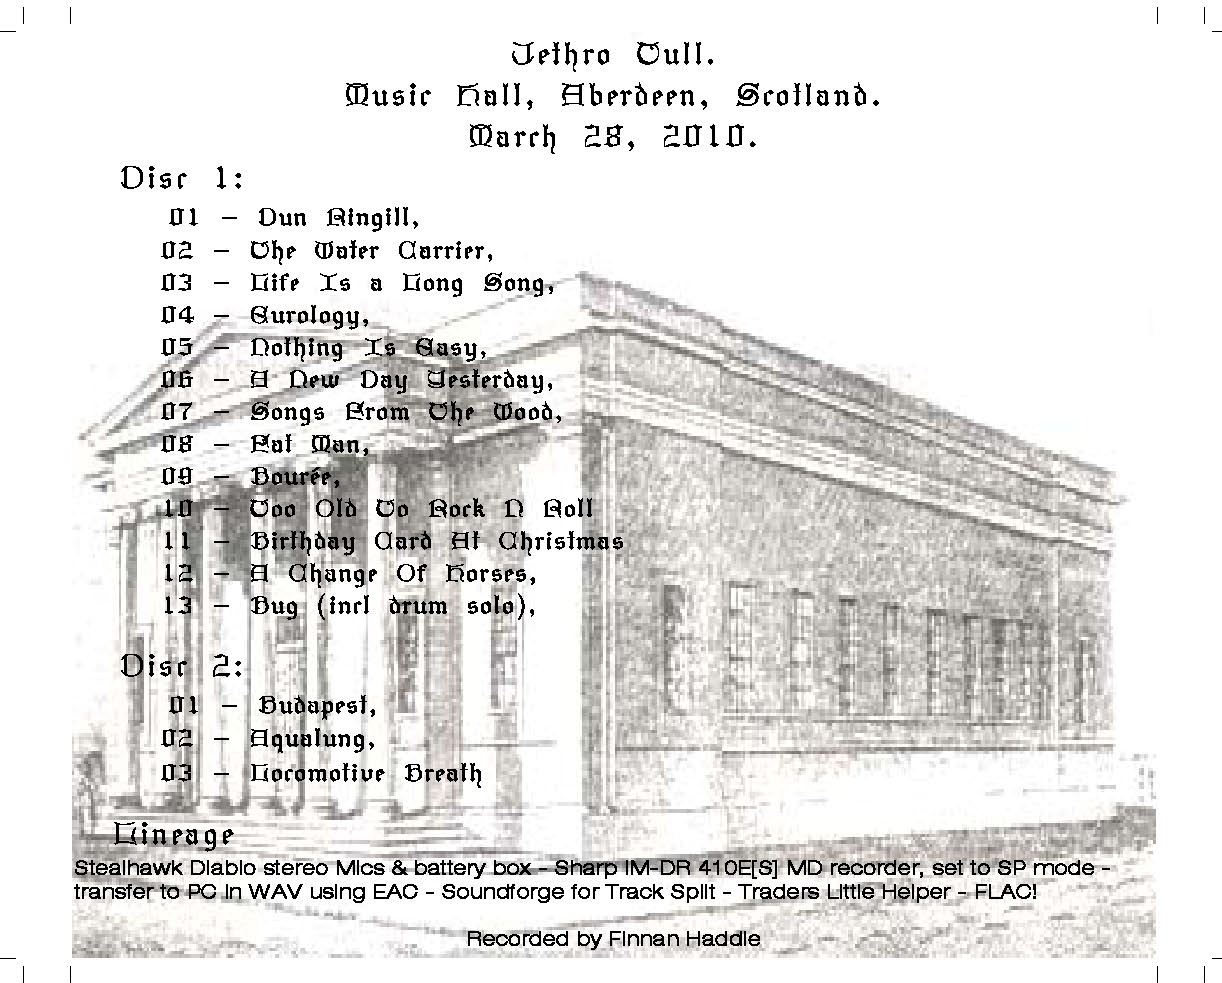 Jethro Tull.
Music Hall, Aberdeen, Scotland.
March 28, 2010.
Disc 1:
01 – Dun Ringill,
02 – The Water Carrier,
03 – Life Is a Long Song,
04 – Eurology,
05 – Nothing Is Easy,
06 – A New Day Yesterday,
07 – Songs From The Wood,
08 – Fat Man,
09 – Bourée,
10 – Too Old To Rock N Roll
11 – Birthday Card At Christmas
12 – A Change Of Horses,
13 – Bug (incl drum solo),
Disc 2:
01 – Budapest,
02 – Aqualung,
03 – Locomotive Breath
Lineage
Stealhawk Diablo stereo Mics & battery box - Sharp IM-DR 410E[S] MD recorder, set to SP mode -
transfer to PC in WAV using EAC - Soundforge for Track Split - Traders Little Helper - FLAC!
Recorded by Finnan Haddie